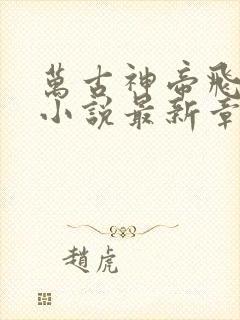 萬古神帝飛
小說最新章
趙虎